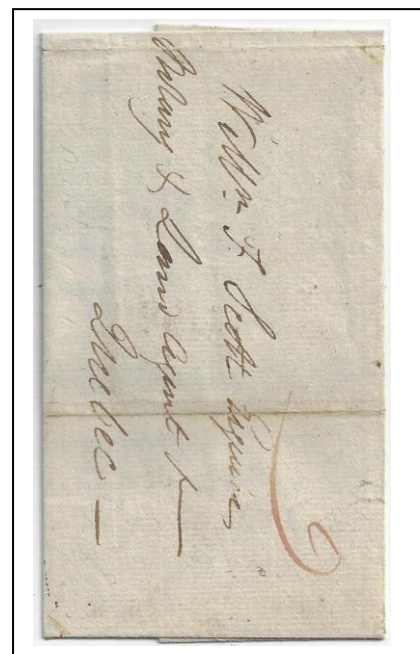 9
Willm F Scott Esquire,
Notary & Land Agent &c —
Quebec —